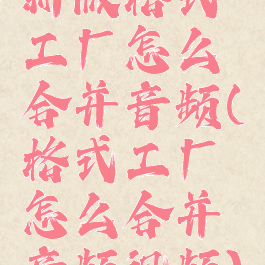 新版格式
工厂怎么
合并音频(
格式工厂
怎么合并
音频视频)